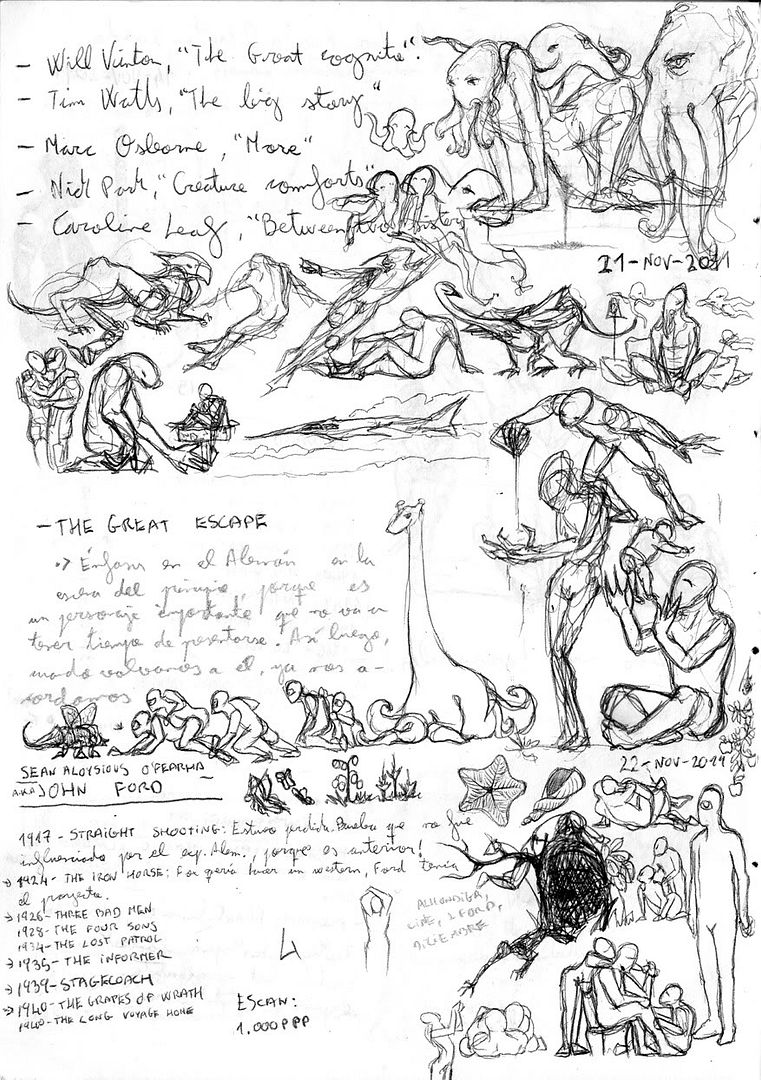 - Will Vinton, "The Great cognito".
- Tim Watts, "The big story"
- Marc Osborne, "More"
- Nick Park, "Creature comforts"
- Caroline Leaf, "Between two sisters
21-NOV-2011
- THE GREAT ESCAPE
·> Énfasis en el Alemán en la
escena del principio, porque es
un personaje importante que no va a
tener tiempo de presentarse. Así luego,
cuando volvamos a él, ya nos a-
cordamos
22-NOV-2011
SEAN ALOYSIOUS O'FEARNA
A.K.A JOHN FORD
1917 - STRAIGHT SHOOTING: Estuvo perdida. Prueba que no fue
influenciado por el exp. Alem., porque es anterior!
→ 1924 - THE IRON HORSE: Fox quería hacer un western, Ford tenía
el proyecto.
→ 1926 - THREE BAD MEN
1928 - THE FOUR SONS
1934 - THE LOST PATROL
→ 1935 - THE INFORMER
→ 1939 - STAGECOACH
→ 1940 - THE GRAPES OF WRATH
1940 - THE LONG VOYAGE HOME
ALHONDIGA,
CINE, J. FORD,
ESCAN:
1.000 PPP